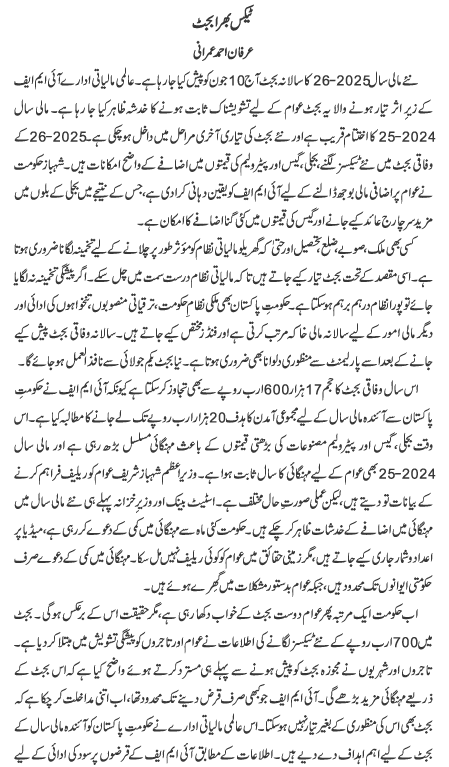 ٹیکس بھرا بجٹ
عرفان احمد عمرانی
نئے مالی سال 2025-26 کا سالانہ بجٹ آج 10 جون کو پیش کیا جا رہا ہے۔ عالمی مالیاتی ادارے آئی ایم ایف
کے زیر اثر تیار ہونے والا یہ بجٹ عوام کے لیے تشویشناک ثابت ہونے کا خدشہ ظاہر کیا جا رہا ہے۔ مالی سال
2024-25 کا اختتام قریب ہے اور نئے بجٹ کی تیاری آخری مراحل میں داخل ہو چکی ہے۔ 2025-26 کے
وفاقی بجٹ میں نئے ٹیکسز لگنے، بجلی، گیس اور پیٹرولیم کی قیمتوں میں اضافے کے واضح امکانات ہیں۔ شہباز حکومت
نے عوام پر اضافی مالی بوجھ ڈالنے کے لیے آئی ایم ایف کو یقین دہانی کرا دی ہے، جس کے نتیجے میں بجلی کے بلوں میں
مزید سرچارج عائد کیے جانے اور گیس کی قیمتوں میں کئی گنا اضافے کا امکان ہے۔
کسی بھی ملک، صوبے، ضلع، تحصیل اور حتیٰ کہ گھریلو مالیاتی نظام کو مؤثر طور پر چلانے کے لیے تخمینہ لگانا ضروری ہوتا
ہے۔ اسی مقصد کے تحت بجٹ تیار کیے جاتے ہیں تاکہ مالیاتی نظام درست سمت میں چل سکے۔ اگر پیشگی تخمینہ نہ لگایا
جائے تو پورا نظام درہم برہم ہو سکتا ہے۔ حکومت پاکستان بھی ملکی نظام حکومت، ترقیاتی منصوبوں، تنخواہوں کی ادائی اور
دیگر مالی امور کے لیے سالانہ مالی خاکہ مرتب کرتی ہے اور فنڈز مختص کیے جاتے ہیں۔ سالانہ وفاقی بجٹ پیش کیے
جانے کے بعد اسے پارلیمنٹ سے منظوری دلوانا بھی ضروری ہوتا ہے۔ نیا بجٹ یکم جولائی سے نافذ العمل ہو جائے گا۔
اس سال وفاقی بجٹ کا حجم 17 ہزار 600 ارب روپے سے بھی تجاوز کر سکتا ہے کیونکہ آئی ایم ایف نے حکومتِ
پاکستان سے آئندہ مالی سال کے لیے مجموعی آمدن کا ہدف 20 ہزار ارب روپے تک لے جانے کا مطالبہ کیا ہے۔ اس
وقت بجلی، گیس اور پیٹرولیم مصنوعات کی بڑھتی قیمتوں کے باعث مہنگائی مسلسل بڑھ رہی ہے اور مالی سال
2024-25 بھی عوام کے لیے مہنگائی کا سال ثابت ہوا ہے۔ وزیراعظم شہباز شریف عوام کو ریلیف فراہم کرنے
کے بیانات تو دیتے ہیں، لیکن عملی صورتِ حال مختلف ہے۔ اسٹیٹ بینک اور وزیر خزانہ پہلے ہی نئے مالی سال میں
مہنگائی میں اضافے کے خدشات ظاہر کر چکے ہیں۔ حکومت کئی ماہ سے مہنگائی میں کمی کے دعوے کر رہی ہے، میڈیا پر
اعداد و شمار جاری کیے جاتے ہیں، مگر زمینی حقائق میں عوام کو کوئی ریلیف نہیں مل سکا۔ مہنگائی میں کمی کے دعوے صرف
حکومتی ایوانوں تک محدود ہیں، جبکہ عوام بدستور مشکلات میں گھرے ہوئے ہیں۔
اب حکومت ایک مرتبہ پھر عوام دوست بجٹ کے خواب دکھا رہی ہے، مگر حقیقت اس کے برعکس ہوگی۔ بجٹ
میں 700 ارب روپے کے نئے ٹیکسز لگانے کی اطلاعات نے عوام اور تاجروں کو پیشگی تشویش میں مبتلا کر دیا ہے۔
تاجروں اور شہریوں نے مجوزہ بجٹ کو پیش ہونے سے پہلے ہی مسترد کرتے ہوئے واضح کیا ہے کہ اس بجٹ کے
ذریعے مہنگائی مزید بڑھے گی۔ آئی ایم ایف جو کبھی صرف قرض دینے تک محدود تھا، اب اتنی مداخلت کر چکا ہے کہ
بجٹ بھی اس کی منظوری کے بغیر تیار نہیں ہو سکتا۔ اس عالمی مالیاتی ادارے نے حکومتِ پاکستان کو آئندہ مالی سال کے
بجٹ کے لیے اہم اہداف دے دیے ہیں۔ اطلاعات کے مطابق آئی ایم ایف کے قرضوں پر سود کی ادائی کے لیے